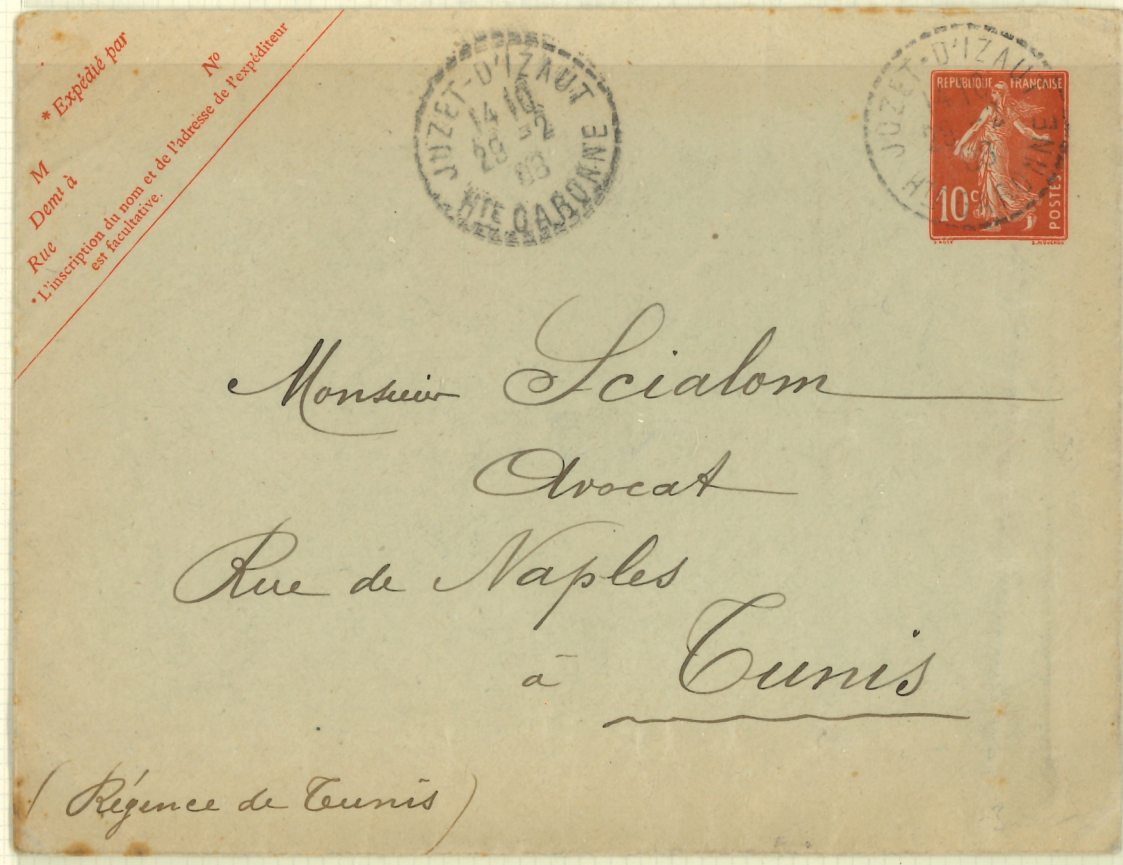 * Expédié par
N°
M
Demt à
Rue
* L'inscription du nom et de l'adresse de l'expéditeur
est facultative.
JUZET-D'IZAUT
14
28
08
HTE GARONNE
JUZET-D'IZAUT
REPUBLIQUE FRANÇAISE
10c
POSTES
Monsieur Scialom
Avocat
Rue de Naples
à Tunis
(Régence de Tunis)